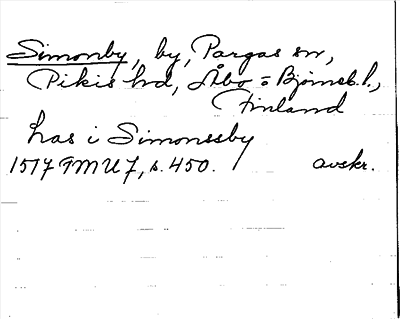 Simonby, by, Pargas sn,
Pikis hd, Åbo = Björneb. l.,
Finland
has i Simonssby
1517 FMU 7, s. 450. avskr.